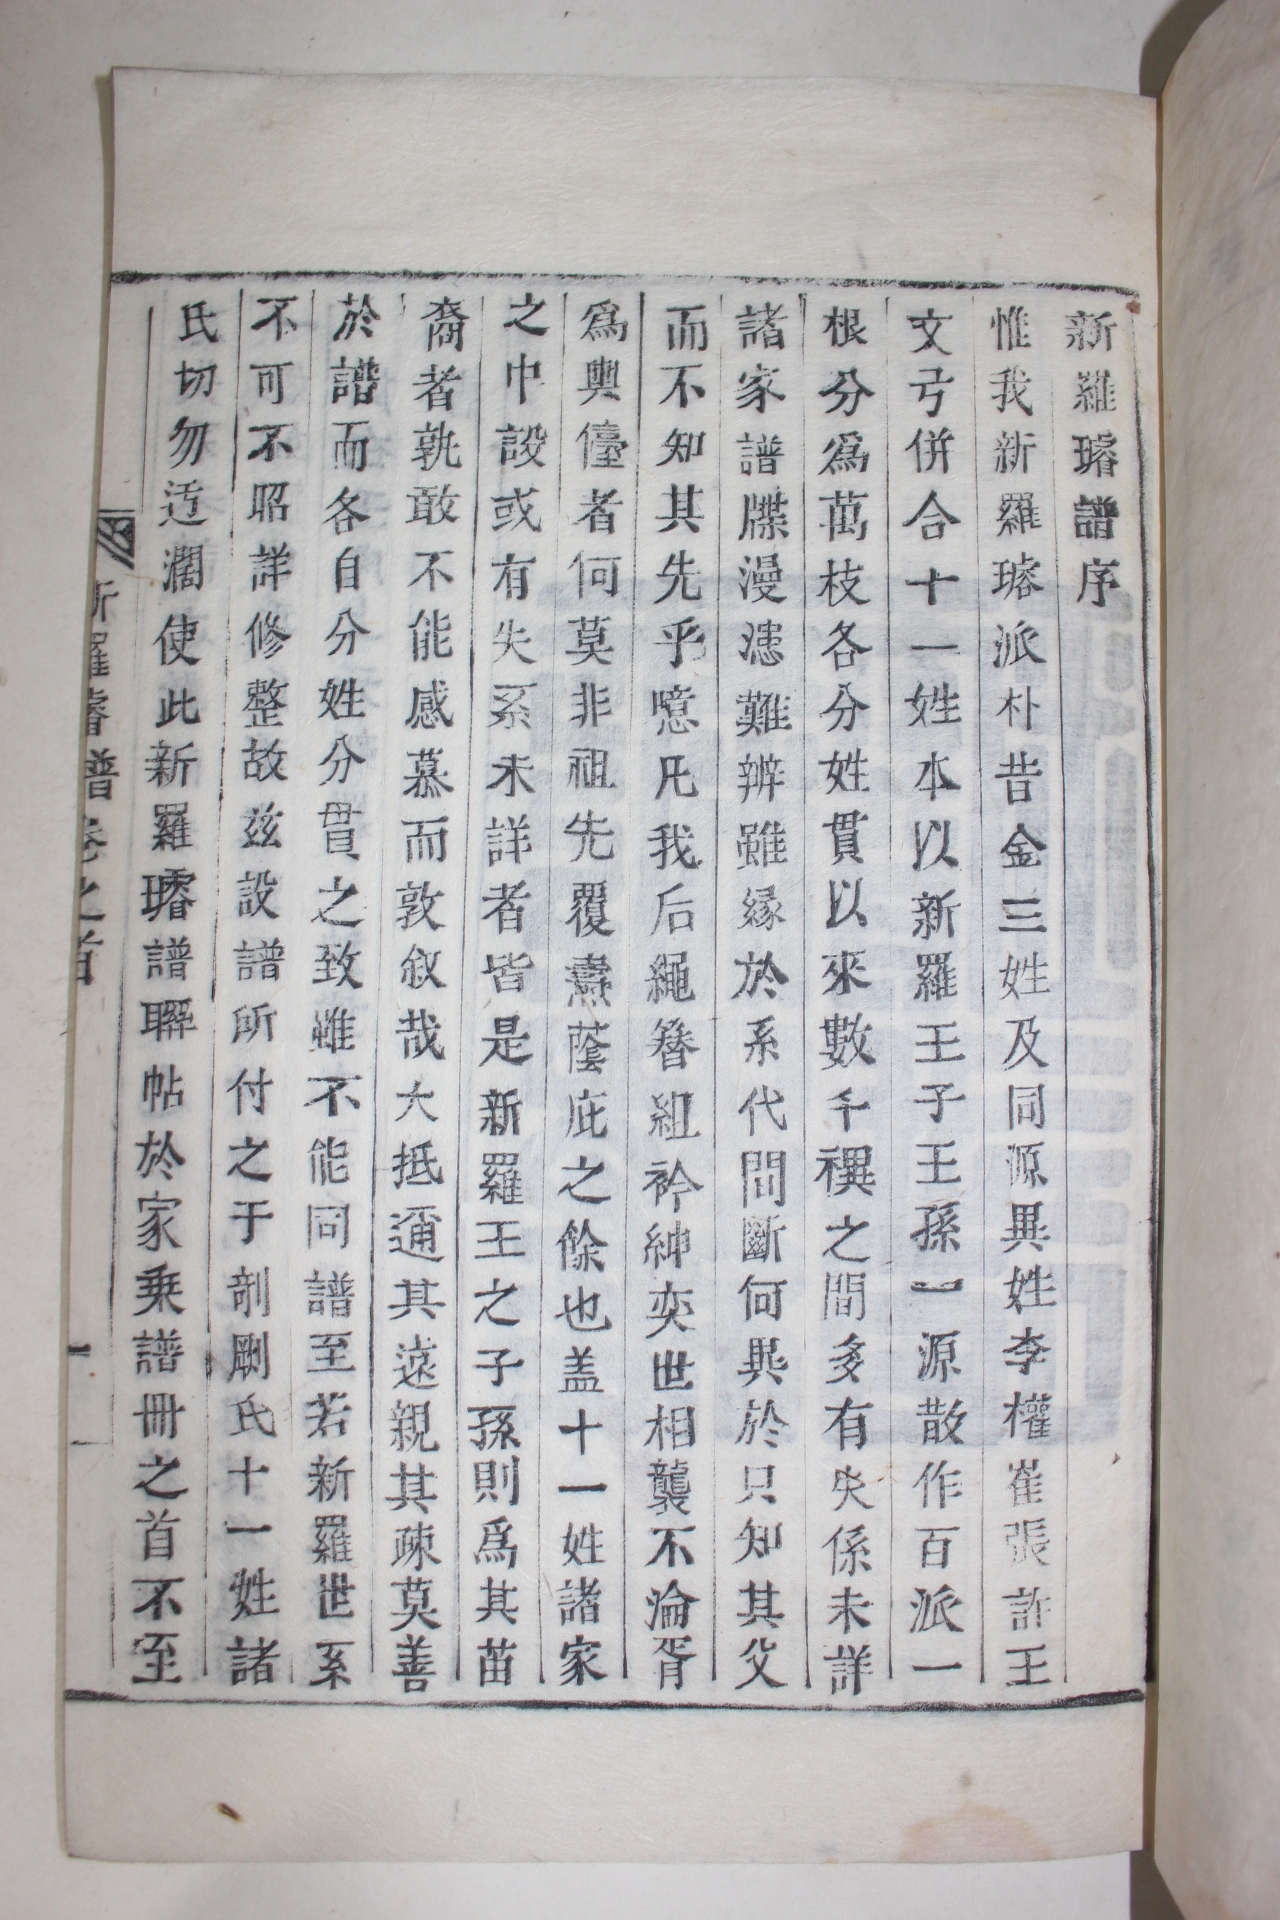 新羅璿譜序
惟我新羅璿派朴昔金三姓及同源異姓李權崔張許王
文弓併合十一姓本以新羅王子王孫一源散作百派一
根分爲萬枝各分姓貫以來數千禩之間多有失係未詳
諸家譜牒漫漶難辨雖緣於系代間斷何異於只知其父
而不知其先乎噫凡我后繩簪組衿紳奕世相襲不淪胥
爲輿儓者何莫非祖先覆燾蔭庇之餘也盖十一姓諸家
之中設或有失系未詳者皆是新羅王之子孫則爲其苗
裔者孰敢不能感慕而敦叙哉大抵邇其遠親其疎莫善
於譜而各自分姓分貫之致雖不能同譜至若新羅世系
不可不昭詳修整故玆設譜所付之于剞劂氏十一姓諸
氏切勿迃濶使此新羅璿譜聯帖於家乗譜冊之首不至
新羅璿譜卷之首 一